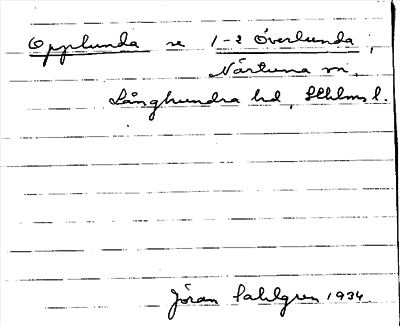 Opplunda se 1-2 Överlunda,
Närtuna sn,
Långhundra hd, Sthlms l.
Jöran Sahlgren 1934